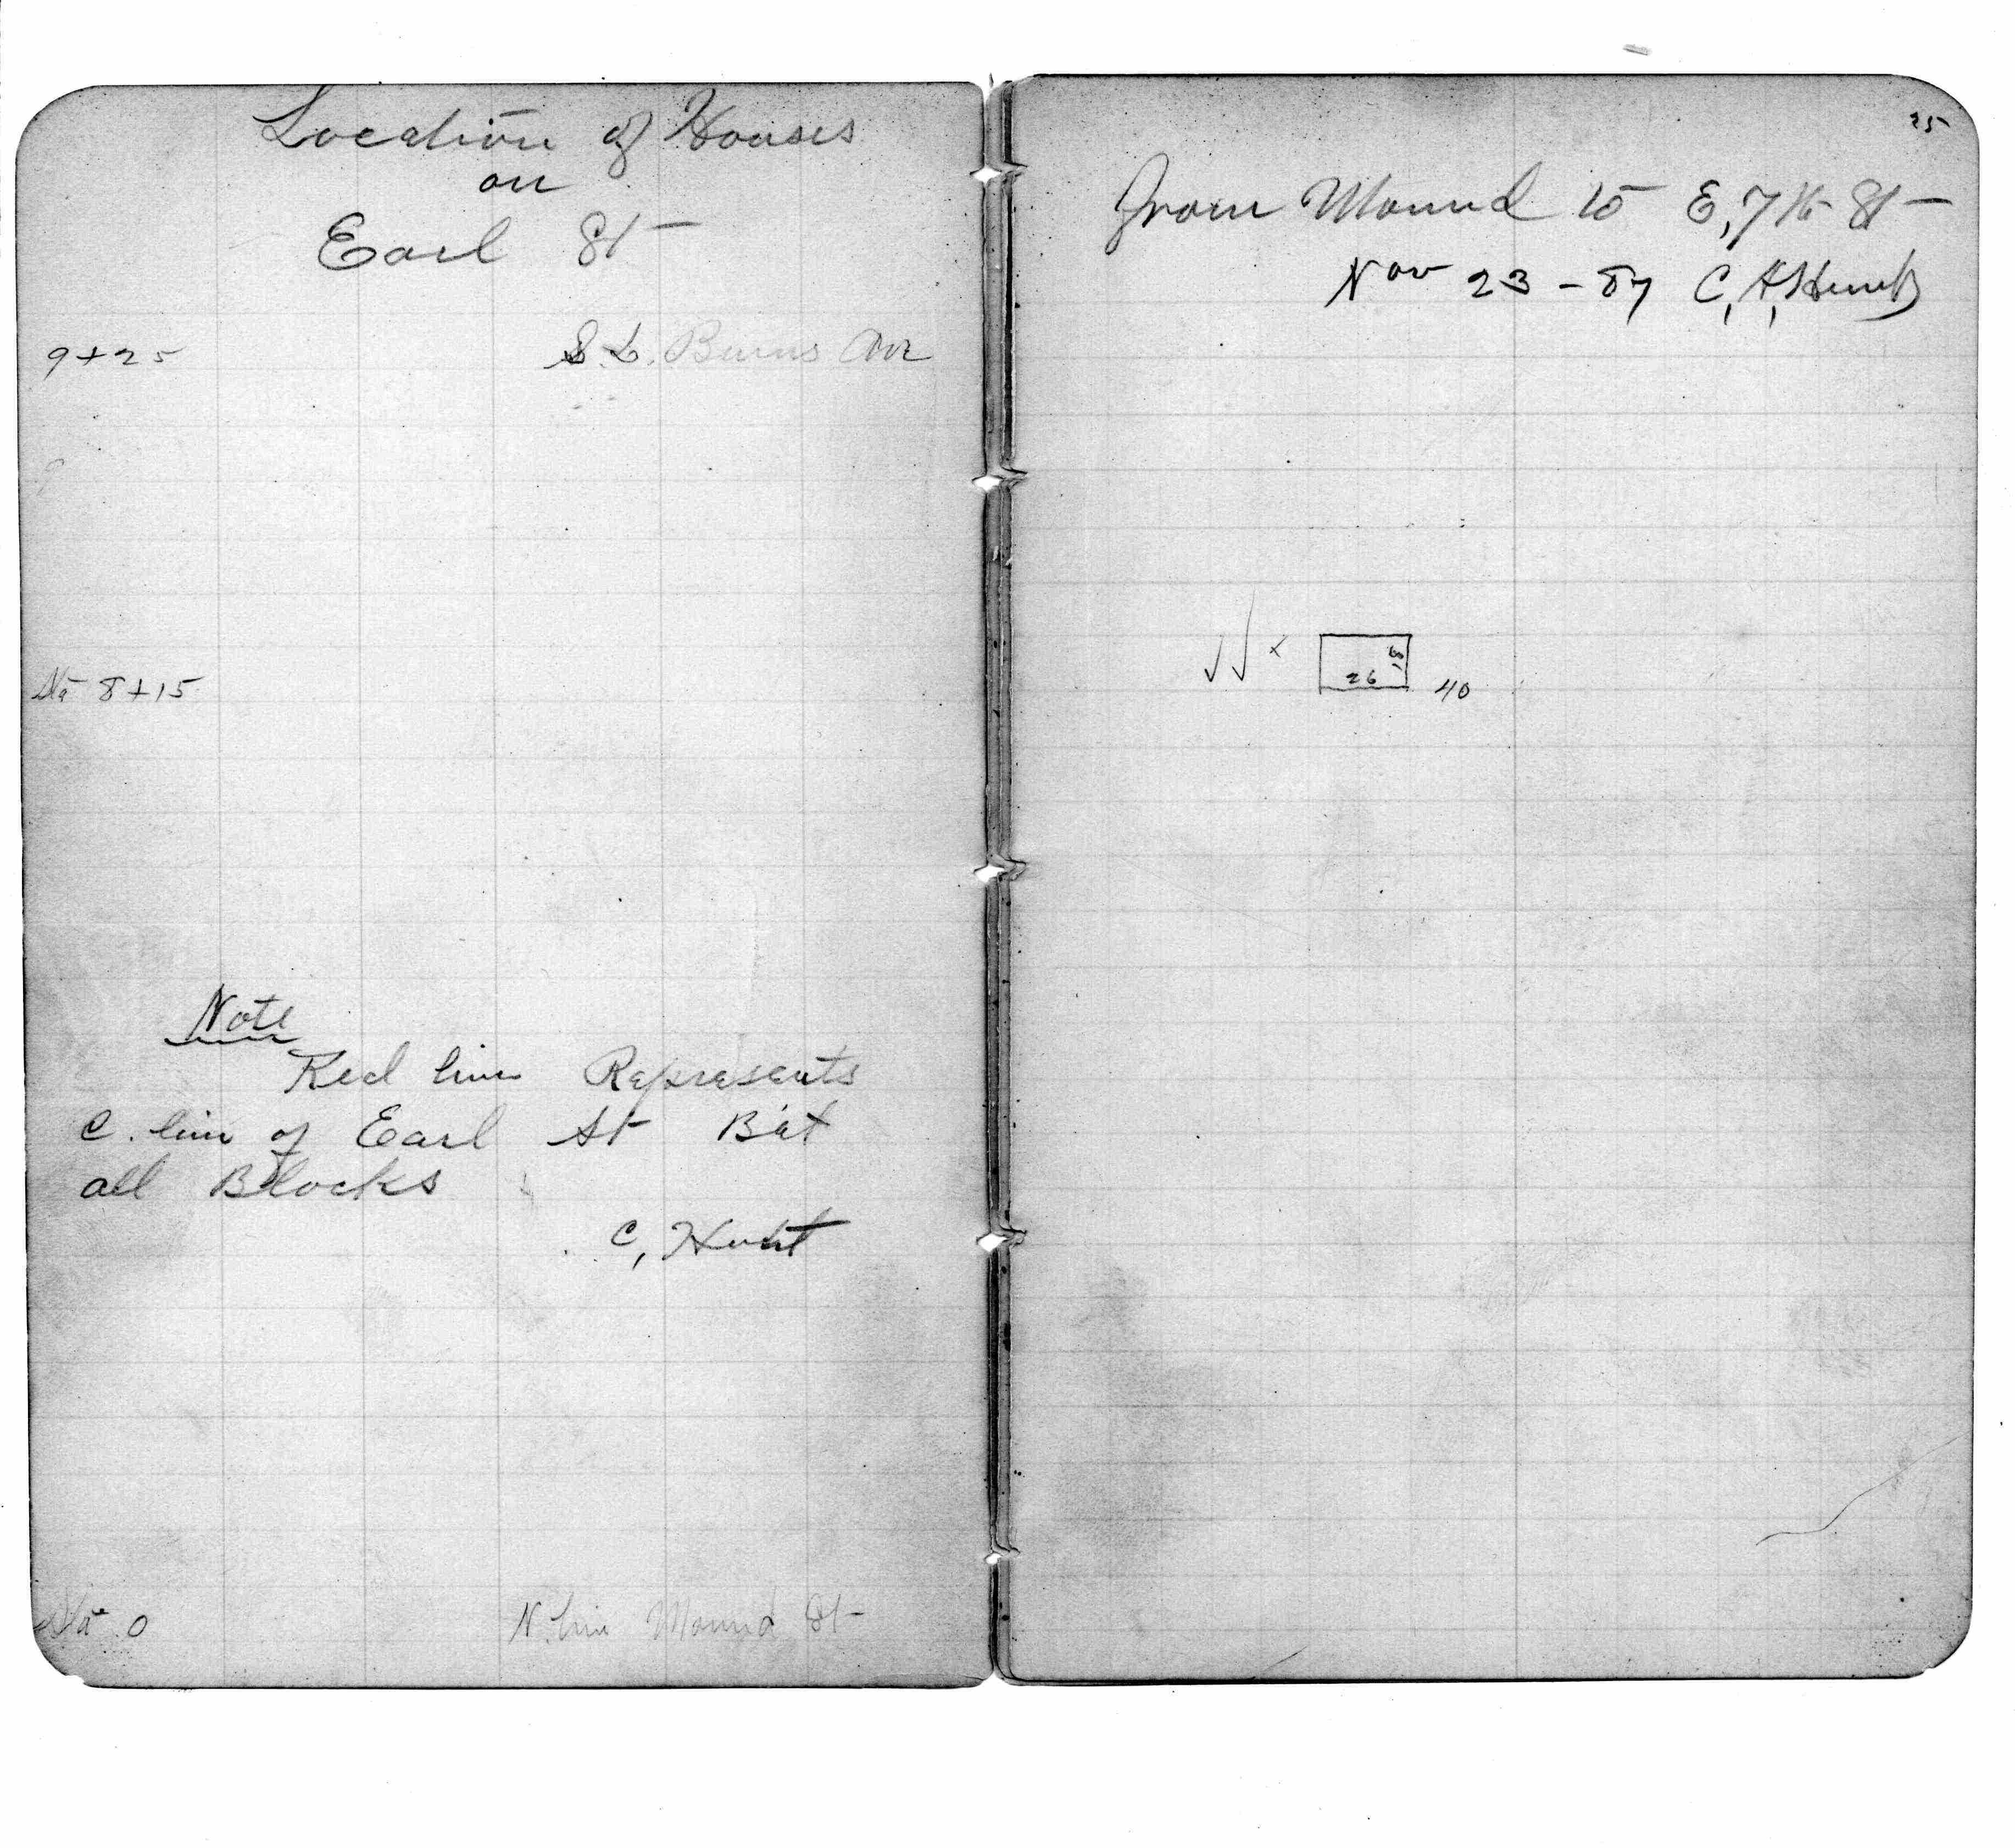 Location of Houses
on
Earl St
9+25 S. L. Burns Ave
Sta 8+15
Note
Red line Represents
C. line of Earl St Bet
all Blocks
C, Hunt
Sta 0 N. line Mound St
25
From Mound to E, 7th St
Nov 23 - 87 C, H, Hunt
26
40